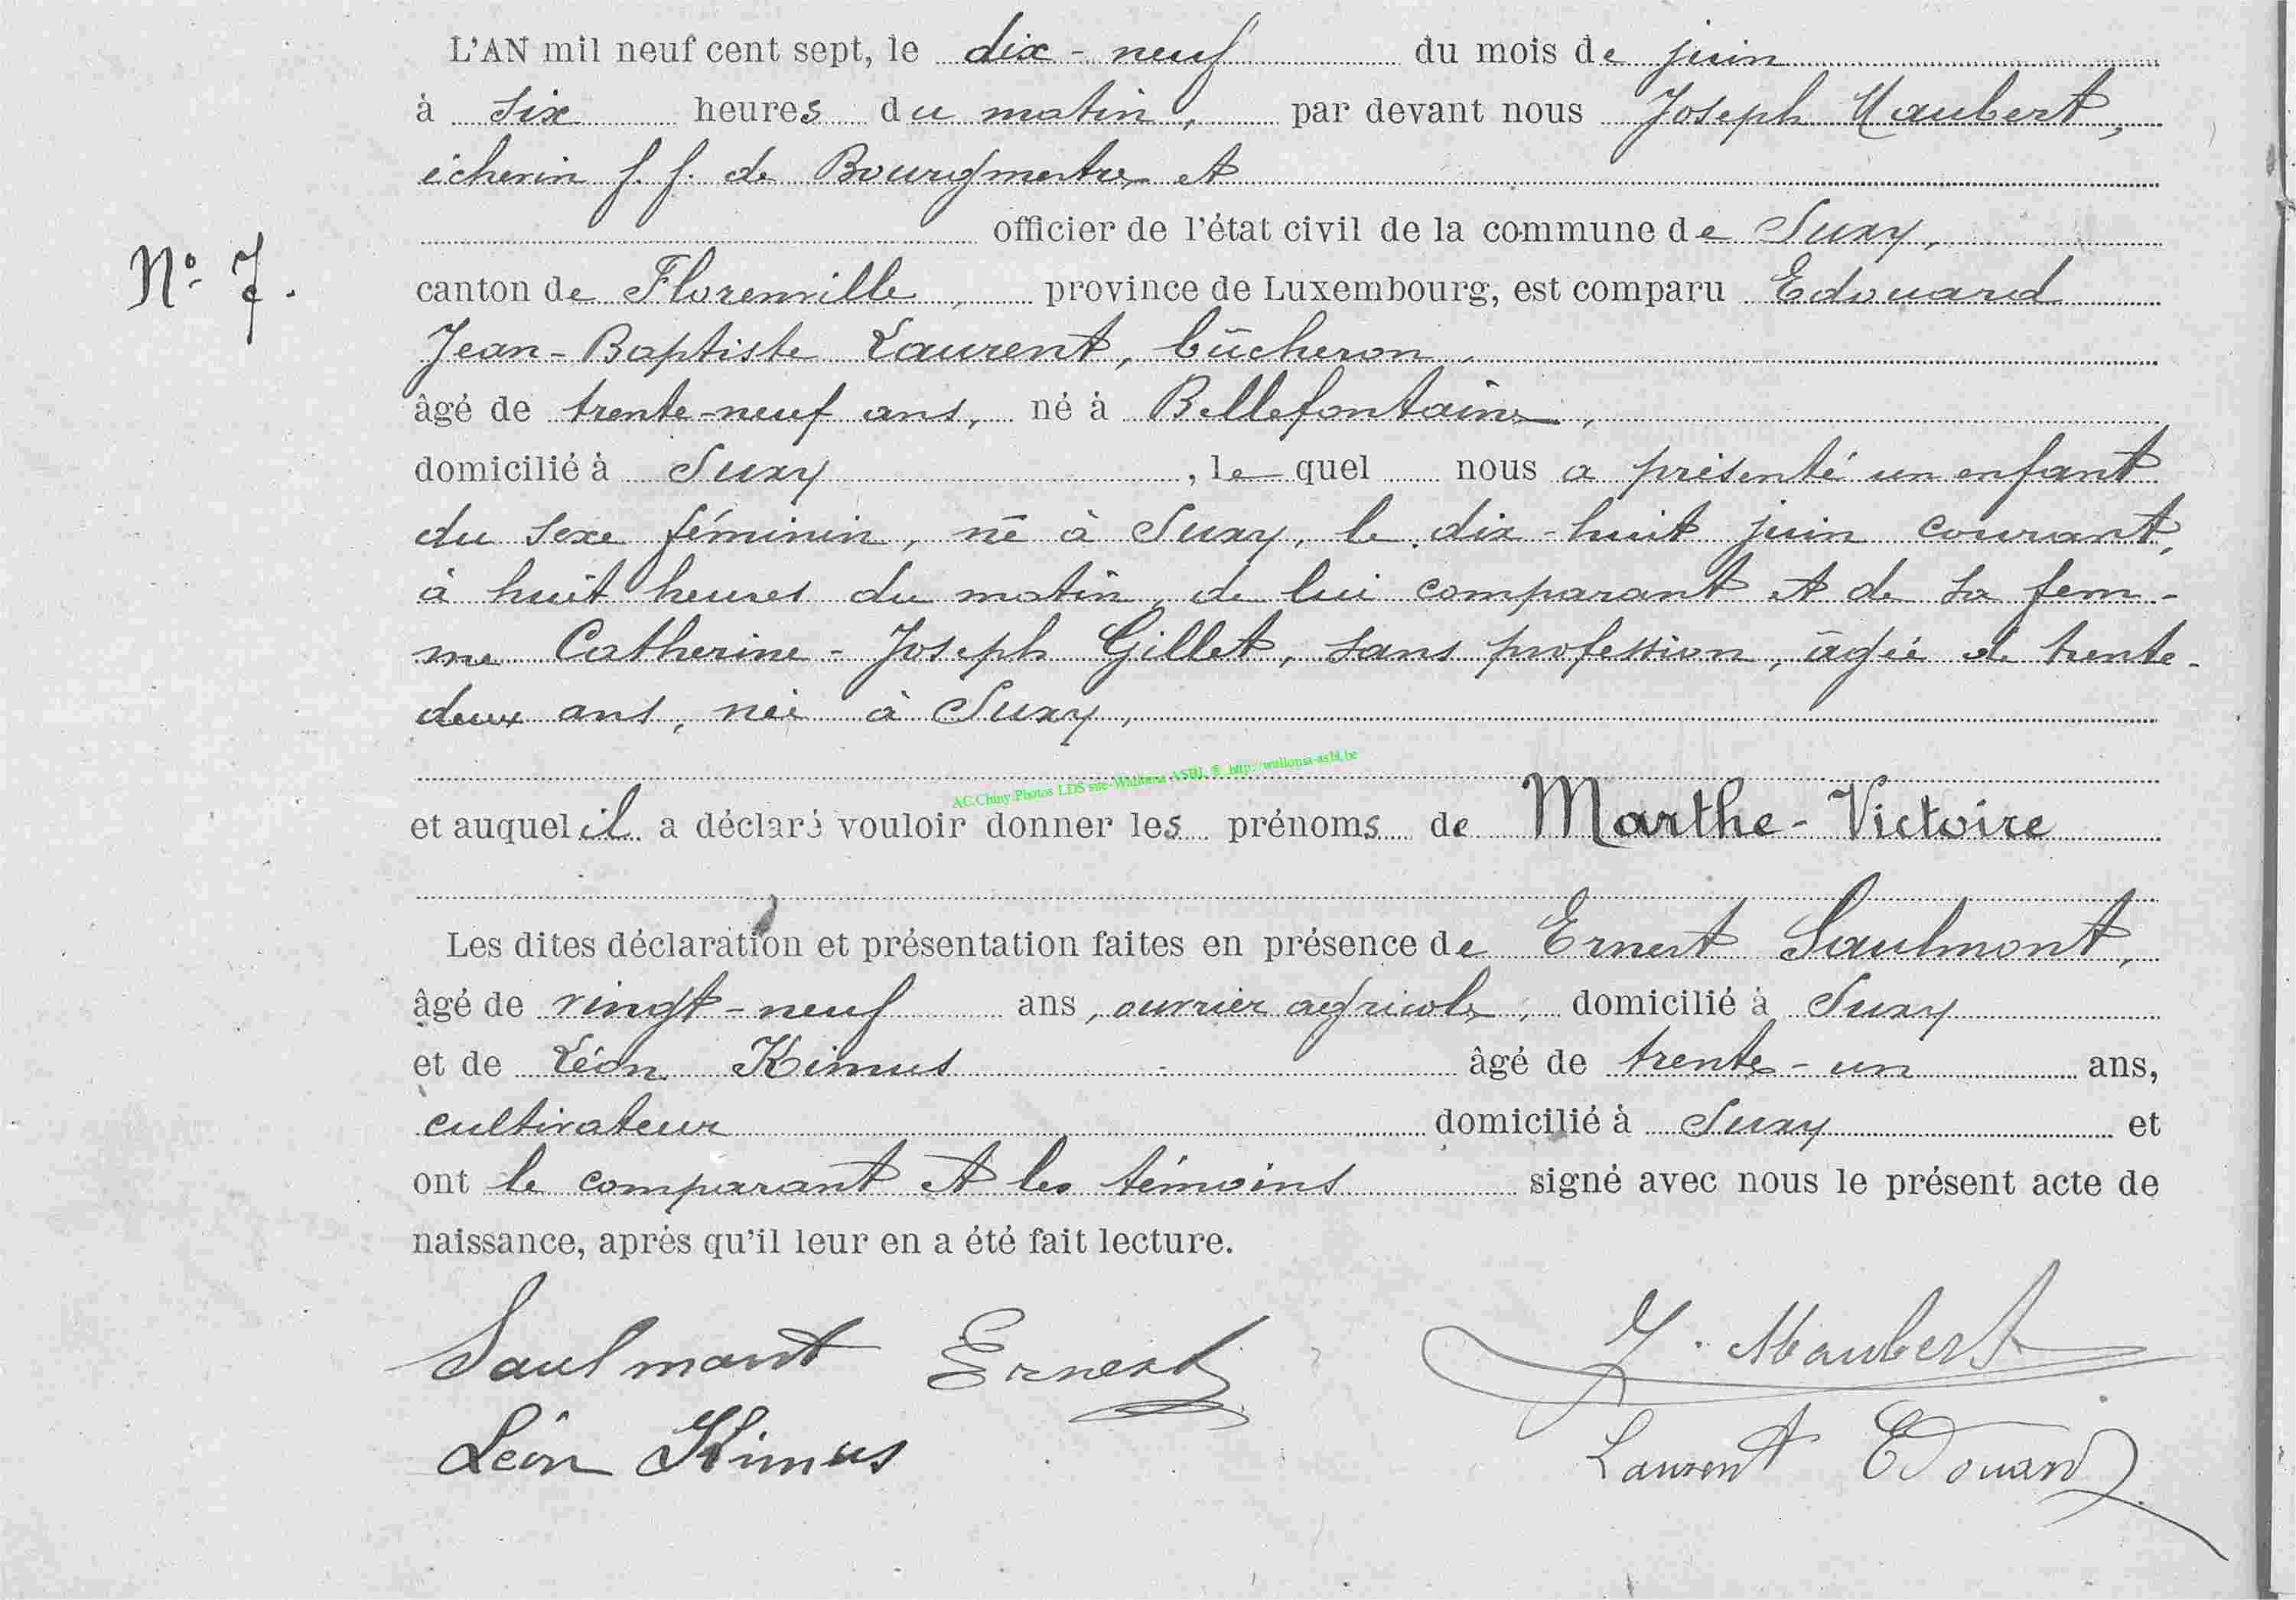 L'AN mil neuf cent sept, le dix-neuf du mois de juin
à six heures du matin, par devant nous Joseph Maubert,
échevin f. f. de Bourgmestre et
officier de l'état civil de la commune de Suxy,
N° 7.
canton de Florenville, province de Luxembourg, est comparu Edouard
Jean-Baptiste Laurent, bûcheron,
âgé de trente-neuf ans, né à Bellefontaine,
domicilié à Suxy, le quel nous a présenté un enfant
du sexe féminin, né à Suxy, le dix-huit juin courant,
à huit heures du matin, de lui comparant et de sa fem-
me Catherine-Joseph Gillet, sans profession, âgée de trente-
deux ans, née à Suxy,
AC.Chiny.Photos LDS site-Wallonia ASBL ® http://wallonia-asbl.be
et auquel il a déclaré vouloir donner les prénoms de Marthe-Victoire
Les dites déclaration et présentation faites en présence de Ernest Saulmont,
âgé de vingt-neuf ans, ouvrier agricole, domicilié à Suxy
et de Léon Kimus âgé de trente-un ans,
cultivateur domicilié à Suxy et
ont le comparant et les témoins signé avec nous le présent acte de
naissance, après qu'il leur en a été fait lecture.
Saulmont Ernest
J. Maubert
Léon Kimus
Laurent Edouard